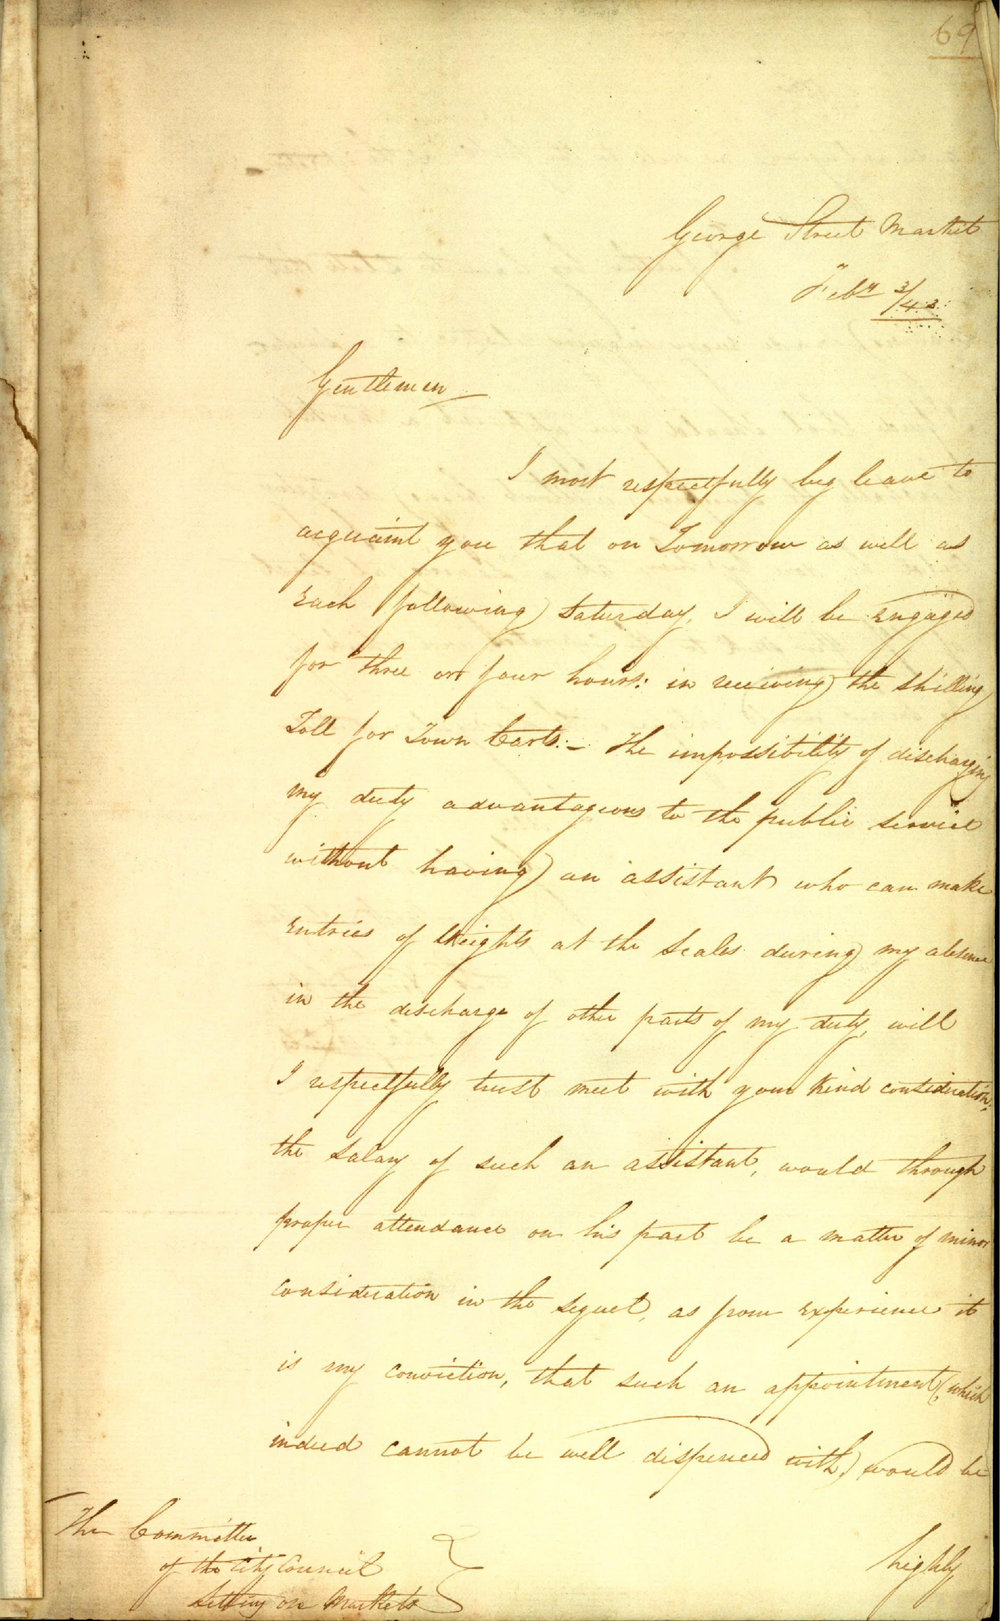 69
George Street Market
Feby 3/43
Gentlemen
I most respectfully beg leave to
acquaint you that on Tomorrow as well as
Each following Saturday, I will be Engaged
for three or four hours: in receiving the Shilling
Toll for Town Carts:- The impossibility of discharging
my duty advantageous to the public service
without having an assistant who can make
Entries of Weights at the Scales during my absence
in the discharge of other parts of my duty, will
I respectfully trust meet with your kind consideration,
the Salary of such an assistant, would through
proper attendance on his part be a matter of minor
consideration in the Sequel, as from Experience it
is my conviction, that such an appointment, (which
indeed cannot be well dispensed with,) would be
highly
The Committee
of the City Council
Sitting on Markets